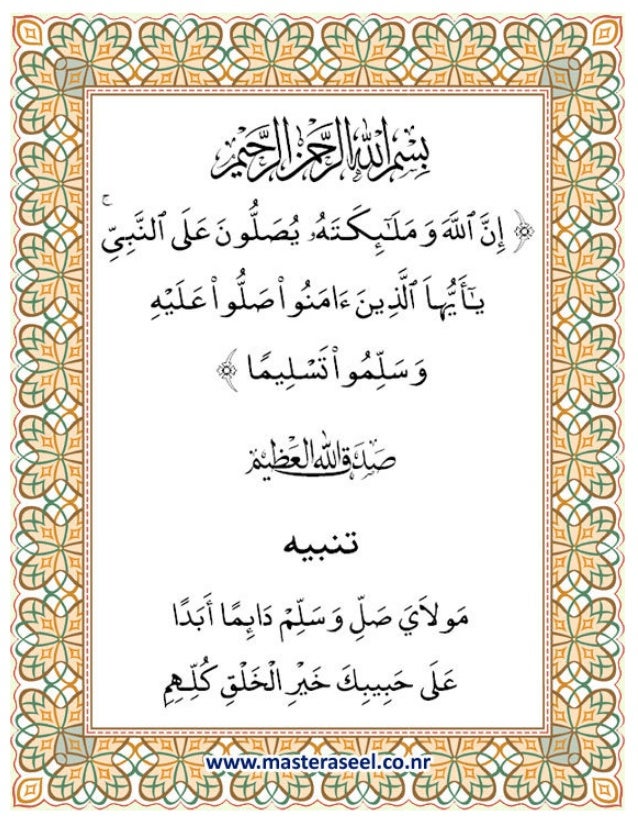 بِسْمِ اللَّهِ الرَّحْمَٰنِ الرَّحِيمِ
﴿ إِنَّ ٱللَّهَ وَمَلَٰٓئِكَتَهُۥ يُصَلُّونَ عَلَى ٱلنَّبِيِّۚ
يَٰٓأَيُّهاَ ٱلَّذِينَ ءَامَنُوا۟ صَلُّوا۟ عَلَيْهِ
وَسَلِّمُوا۟ تَسْلِيمًا ﴾
صَدَقَ اللَّهُ الْعَظِيمُ
تنبيه
مَولاَيَ صَلِّ وَسَلِّمْ دَائِمًا أَبَدًا
عَلَى حَبِيبِكَ خَيْرِ الْخَلْقِ كُلِّهِمِ
www.masteraseel.co.nr